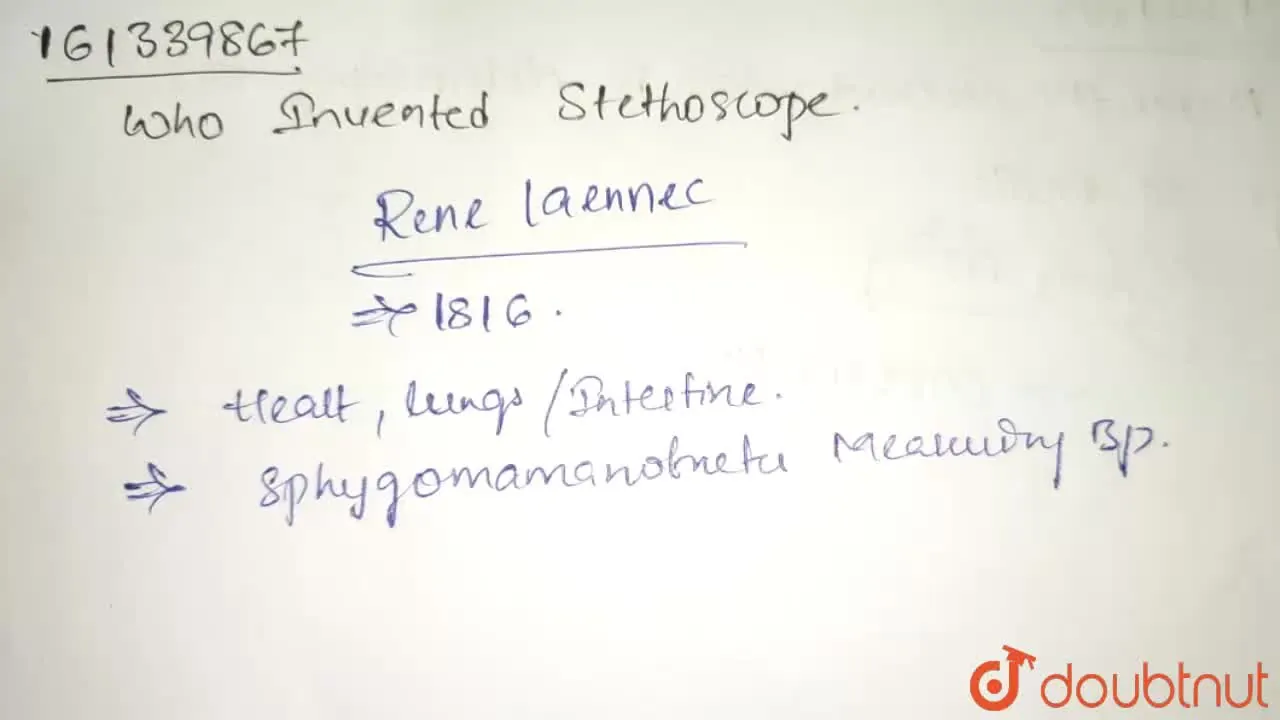 161339867
Who Invented Stethoscope.
Rene laennec
⇒ 1816.
⇒ Heart, lungs/Intestine.
⇒ Sphygomamanometer Measuring Bp.
doubtnut